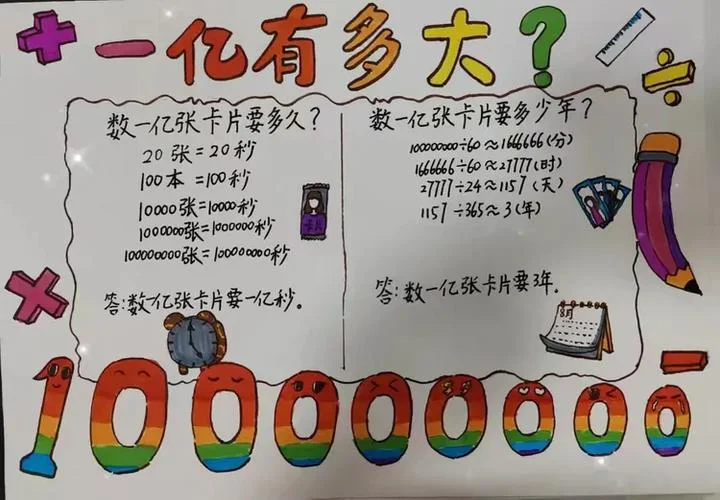 一亿有多大?
数一亿张卡片要多久?
20张=20秒
100本=100秒
10000张=10000秒
1000000张=1000000秒
100000000张=100000000秒
答:数一亿张卡片要一亿秒。
卡片
数一亿张卡片要多少年?
100000000÷60≈1666666(分)
1666666÷60≈27777(时)
27777÷24≈1157(天)
1157÷365≈3(年)
答:数一亿张卡片要3年.
8月
100000000